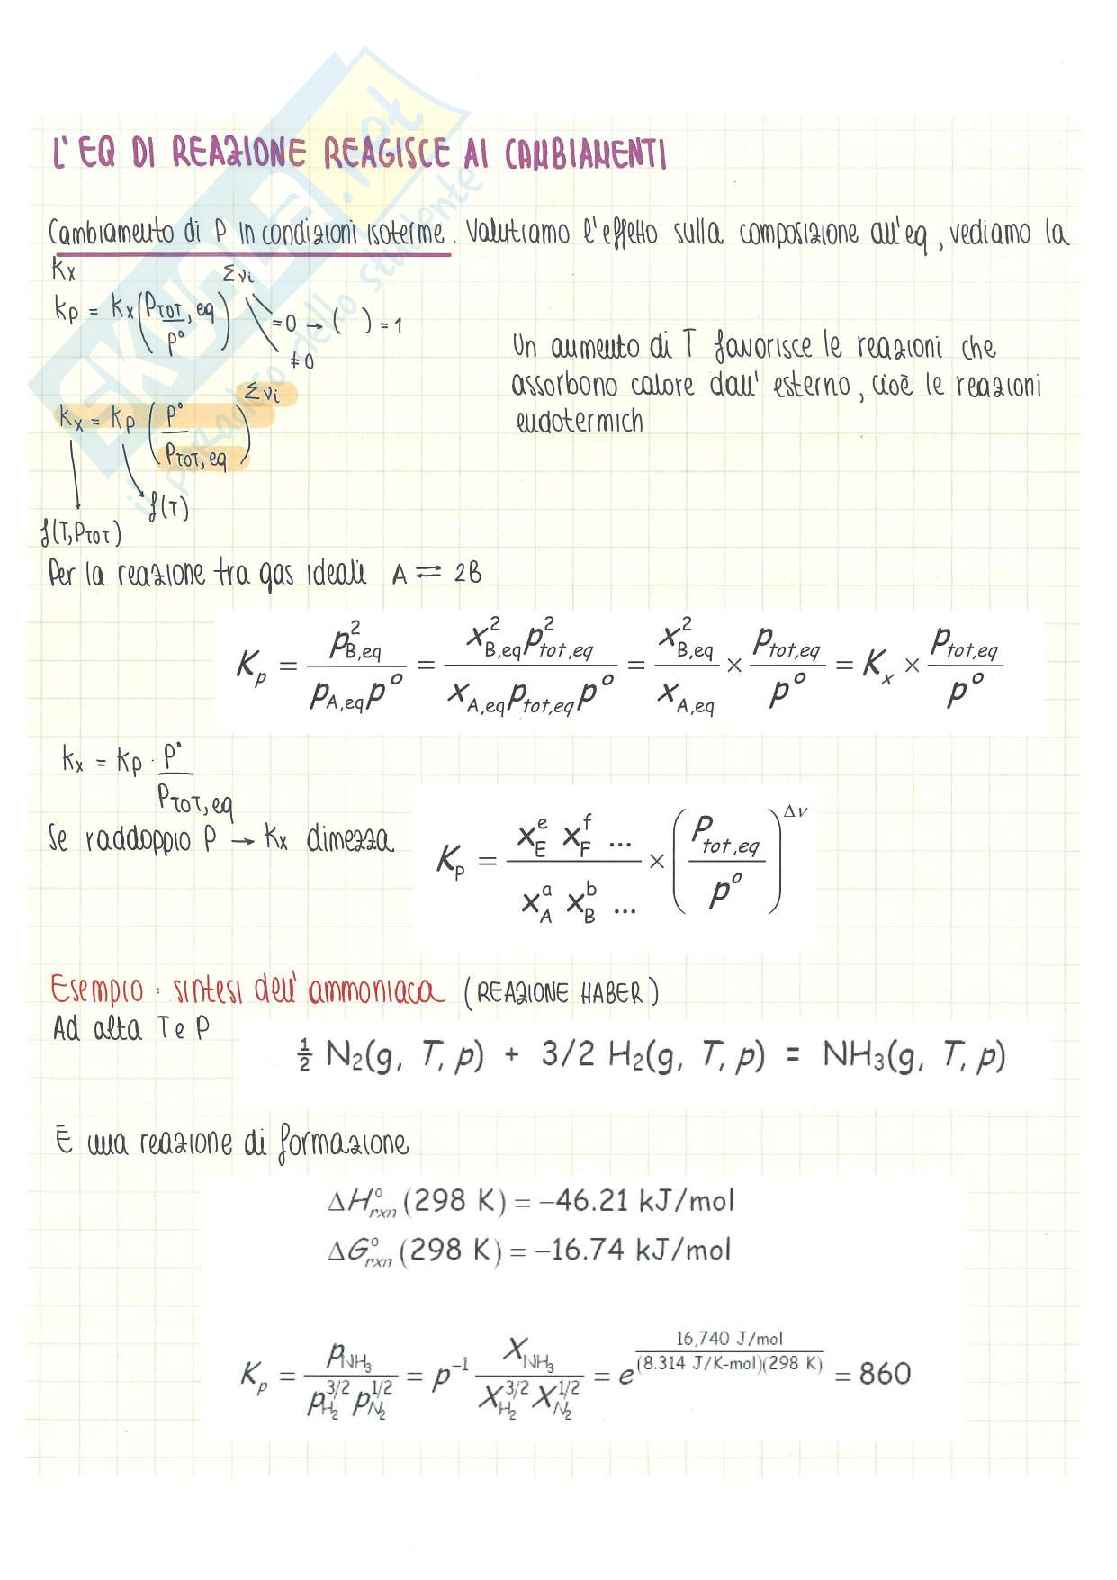 L'EQ DI REAZIONE REAGISCE AI CAMBIAMENTI
Cambiamento di P in condizioni isoterme. Valutiamo l'effetto sulla composizione all'eq, vediamo la
Kx
Kp = Kx (PTOT, eq / P°)^Σνi =0 → ( ) = 1
≠0
Kx = Kp (P° / PTOT, eq)^Σνi
f(T)
f(T, PTOT)
Un aumento di T favorisce le reazioni che
assorbono calore dall' esterno, cioè le reazioni
endotermich
Per la reazione tra gas ideali A ⇌ 2B
Kp = p²B,eq / pA,eq p° = x²B,eq p²tot,eq / xA,eq ptot,eq p° = x²B,eq / xA,eq × ptot,eq / p° = Kx × ptot,eq / p°
Kx = Kp · P° / PTOT, eq
Se raddoppio P → Kx dimezza
Kp = x^e_E x^f_F ... / x^a_A x^b_B ... × (Ptot,eq / p°)^Δν
Esempio: sintesi dell' ammoniaca (REAZIONE HABER)
Ad alta T e P
½ N₂(g, T, p) + 3/2 H₂(g, T, p) = NH₃(g, T, p)
È una reazione di formazione
ΔH°rxn (298 K) = −46.21 kJ/mol
ΔG°rxn (298 K) = −16.74 kJ/mol
Kp = pNH₃ / p^3/2 H₂ p^1/2 N₂ = p⁻¹ XNH₃ / X^3/2 H₂ X^1/2 N₂ = e^(16,740 J/mol / (8.314 J/K-mol)(298 K)) = 860
SKUOLA.net
il paradiso dello studente